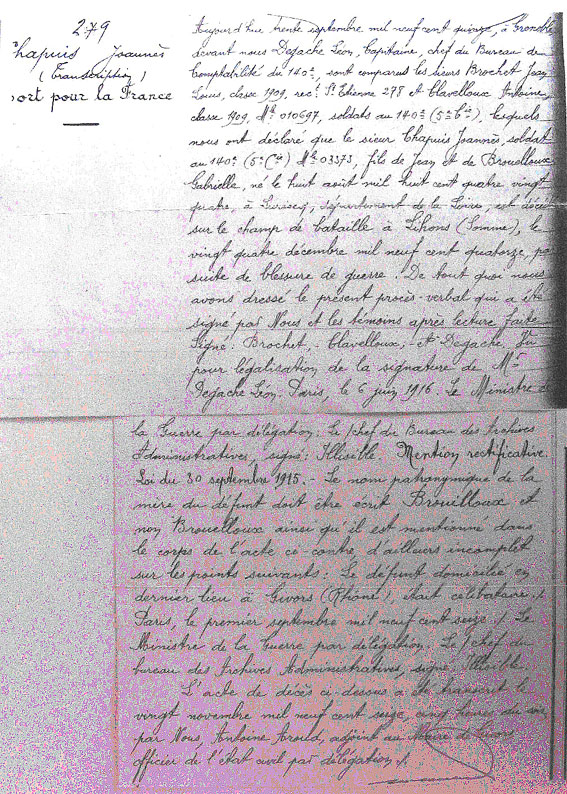 279
Chapuis Joannès
(Transcription)
Mort pour la France
Aujourd'hui trente septembre mil neuf cent quinze, à
devant nous Dejache Léon, Capitaine, chef du Bureau de
Comptabilité du 140e, sont comparus les sieurs Brochet Jean
Louis, classe 1909, rect St Etienne 278 et Clavelloux Antoine,
classe 1909, Mle 010697, soldats au 140e (5e Cie), lesquels
nous ont déclaré que le sieur Chapuis Joannès, soldat
au 140e (5e Cie) Mle 03573, fils de Jean et de Brouelloux
Gabrielle, né le huit août mil huit cent quatre vingt
quatre, à, département de la Loire, est décédé
sur le champ de bataille à Lihons (Somme), le
vingt quatre décembre mil neuf cent quatorze, par
suite de blessure de guerre. De tout quoi nous
avons dressé le présent procès-verbal qui a été
signé par Nous et les témoins après lecture faite
Signé: Brochet, - Clavelloux, - et Dejache. Vu
pour légalisation de la signature de Mr
Dejache Léon. Paris, le 6 juin 1916. Le Ministre de
la Guerre par délégation: Le chef du Bureau des Archives
Administratives, signé: Illisible. Mention rectificative.
Loi du 30 septembre 1915. - Le nom patronymique de la
mère du défunt doit être écrit Brouilloux et
non Brouelloux ainsi qu'il est mentionné dans
le corps de l'acte ci-contre, d'ailleurs incomplet
sur les points suivants: Le défunt domicilié en
dernier lieu à Givors (Rhône), était célibataire ./.
Paris, le premier septembre mil neuf cent seize ./. Le
Ministre de la Guerre par délégation. Le chef du
bureau des Archives Administratives, signé: Illisible.
L'acte de décès ci-dessus a été transcrit le
vingt novembre mil neuf cent seize, cinq heures du soir
par Nous, Antoine, adjoint au Maire de Givors
officier de l'état civil par délégation ./.